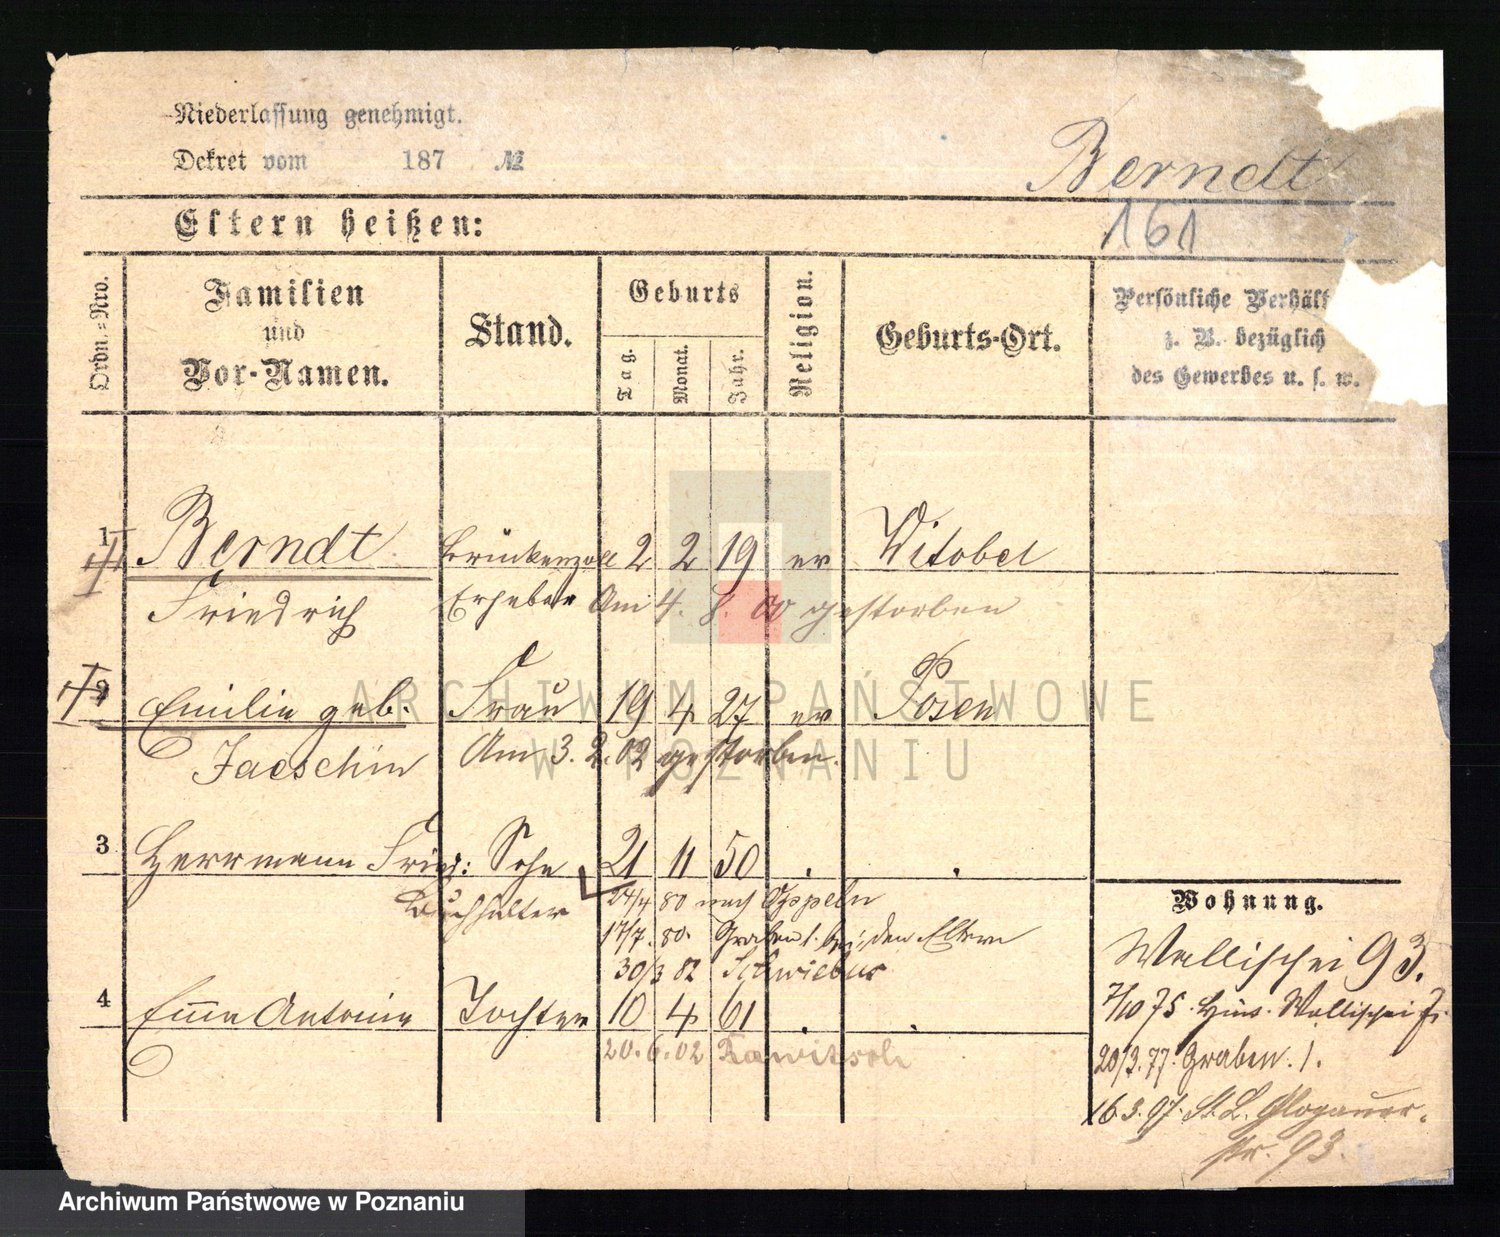 Niederlassung genehmigt.
Dekret vom 187 №
Berndt
161
Eltern heißen:
Ordn.=Nro.
Familien
und
Vor-Namen.
Stand.
Geburts
Tag.
Monat.
Jahr.
Religion.
Geburts-Ort.
Persönliche Verhält
z. B. bezüglich
des Gewerbes u. s. w.
1 Berndt Brückenzoll 2 2 19 ev Witobel
Friedrich Erheber Am 4. 8. 00 gestorben
2 Emilie geb. Frau 19 4 27 ev Posen
Jaeschin Am 3. 2. 02 gestorben.
3 Herrmann Fried: Sohn 21 11 50 . .
Buchhalter 24/4 80 nach Oppeln
17/7. 80. Graben 1. bei den Eltern
30/3 82 Schwiebus
4 Emma Antonie Tochter 10 4 61 . .
20. 6. 02 Rawitsch
Wohnung.
Wallischei 93.
7/10 75. Wallischei
20/3. 77. Graben. 1.
16.3.97. St. L. Glogauer-
str. 93.
ARCHIWUM PAŃSTWOWE
W POZNANIU
Archiwum Państwowe w Poznaniu